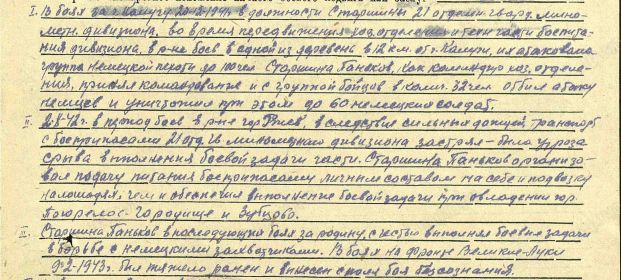 I. В боях за г. Калугу 20-12-1941 в должности Старшины 21 отдельн. гвард. мино-
метн. дивизиона, во время передвижения хоз. отделения и тех. части боепита-
ния дивизиона, в р-не боев в одной из деревень в 12 км. от г. Калуги, их атаковала
группа немецкой пехоты до чел. Старшина Паньков, как командир хоз. отделе-
ния, принял командование и с группой бойцов в колич. 32 чел. отбил атаку
немцев и уничтожил при этом до 60 немецких солдат.
II. 2-8-42 г. в период боев в р-не гор. Ржев, в следствие сильных дождей, транспорт
с боеприпасами 21 отд. гв. минометного дивизиона застрял - была угроза
срыва выполнения боевой задачи части. Старшина Паньков организо-
вал подачу питания боеприпасами личным составом на себе и подвозку
на лошадях, чем и обеспечил выполнение боевой задачи при овладении гор.
Погорелое-Городище и Зубцово.
III. Старшина Паньков в последующих боях за родину, с честью выполнял боевые задачи
в борьбе с немецкими захватчиками. В боях на фронте Великие-Луки
9-2-1943 г. был тяжело ранен и вынесен с поля боя без сознания.